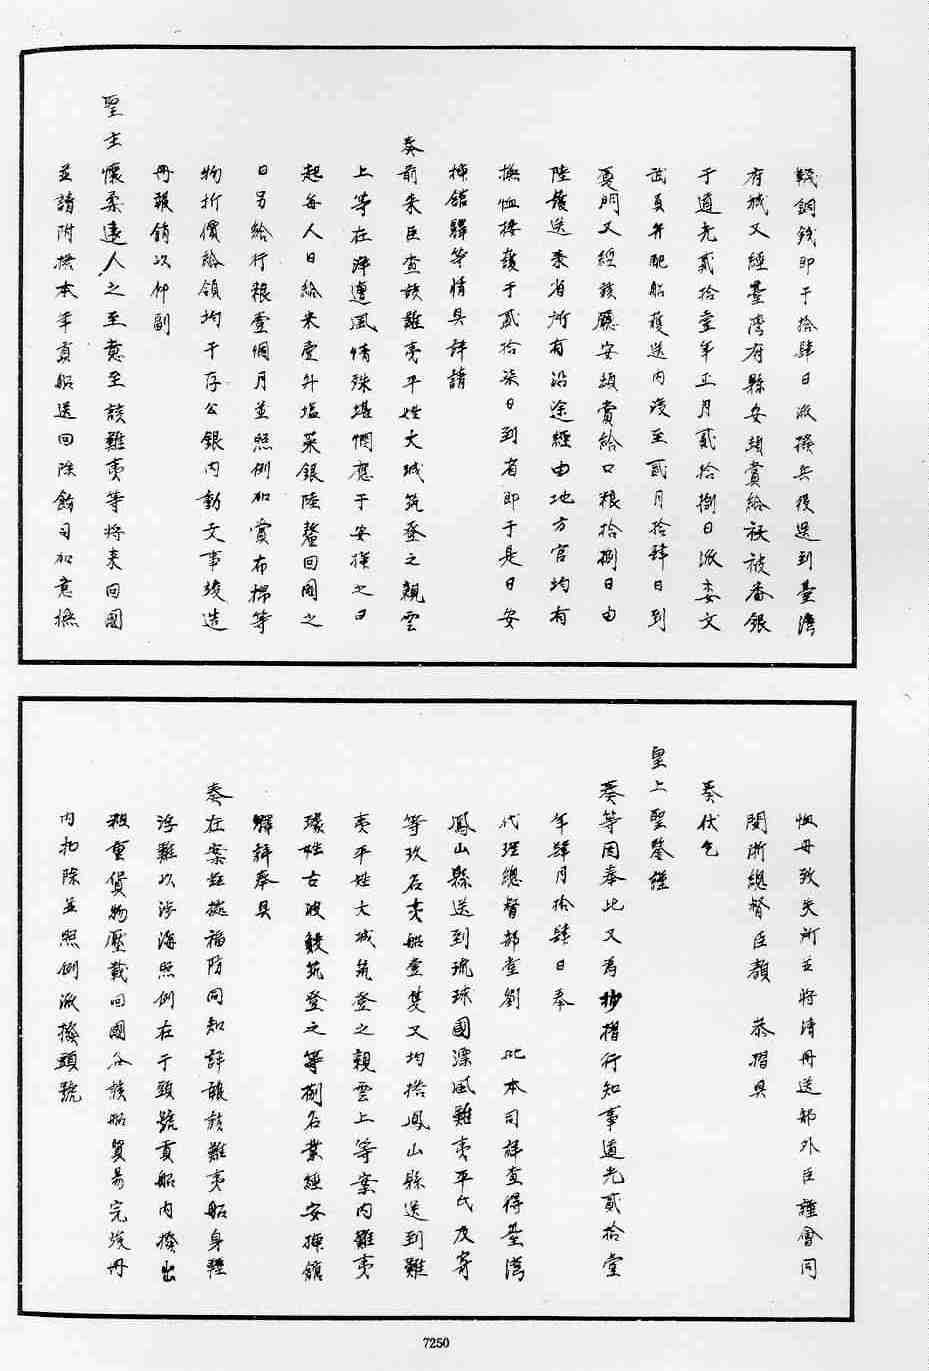 錢銅錢即于拾肆日派撥兵役送到臺灣
府城又經臺灣府縣安頓賞給衣被番銀
于道光貳拾壹年正月貳拾捌日派委文
武員弁配船護送內渡至貳月拾肆日到
廈門又經該廳安頓賞給口粮拾捌日由
陸護送來省所有沿途經由地方官均有
撫恤接護于貳拾柒日到省即于是日安
揷館驛等情具詳請
奏前來臣查該難夷平姓大城筑登之親雲
上等在洋遭風情殊堪憫應于安揷之日
起每人日給米壹升塩菜銀陸釐回國之
日另給行粮壹個月並照例加賞布棉等
物折價給領均于存公銀內動支事竣造
冊報銷以仰副
聖主懷柔遠人之至意至該難夷等將來回國
並請附搭本年貢船送回除飭司加意撫
恤毋致失所並將清冊送部外臣謹會同
閩浙總督臣顏 恭摺具
奏伏乞
皇上聖鑒謹
奏等因奉此又為抄摺行知事道光貳拾壹
年肆月拾肆日奉
代理總督部堂劉 此本司詳查得臺灣
鳳山縣送到琉球國漂風難夷平氏及寄
等玖名夷船壹隻又均搭鳳山縣送到難
夷平姓大城筑登之親雲上等案內難夷
姓古波鮫筑登之等捌名業經安揷館
驛詳奉具
奏在案玆據福防同知詳報該難夷船身輕
浮難以涉海照例在于頭號貢船內撥出
粗重貨物壓載回國各該船貿易完竣冊
內扣除並照例派撥頭號
7250